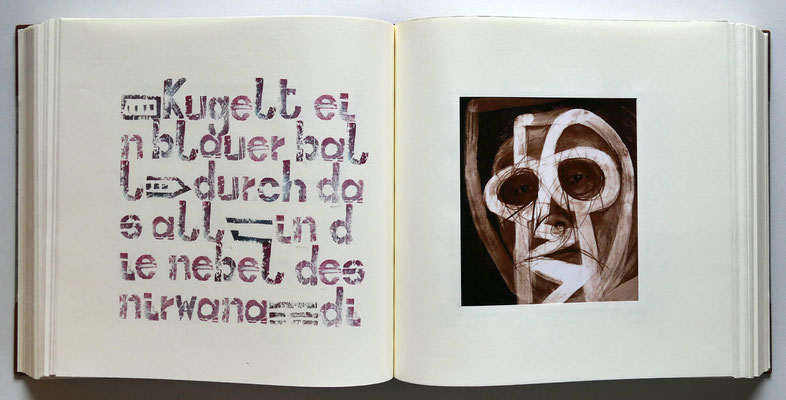 Kugelt ei
n blauer bal
l durch da
s all in d
ie nebel des
nirwana di